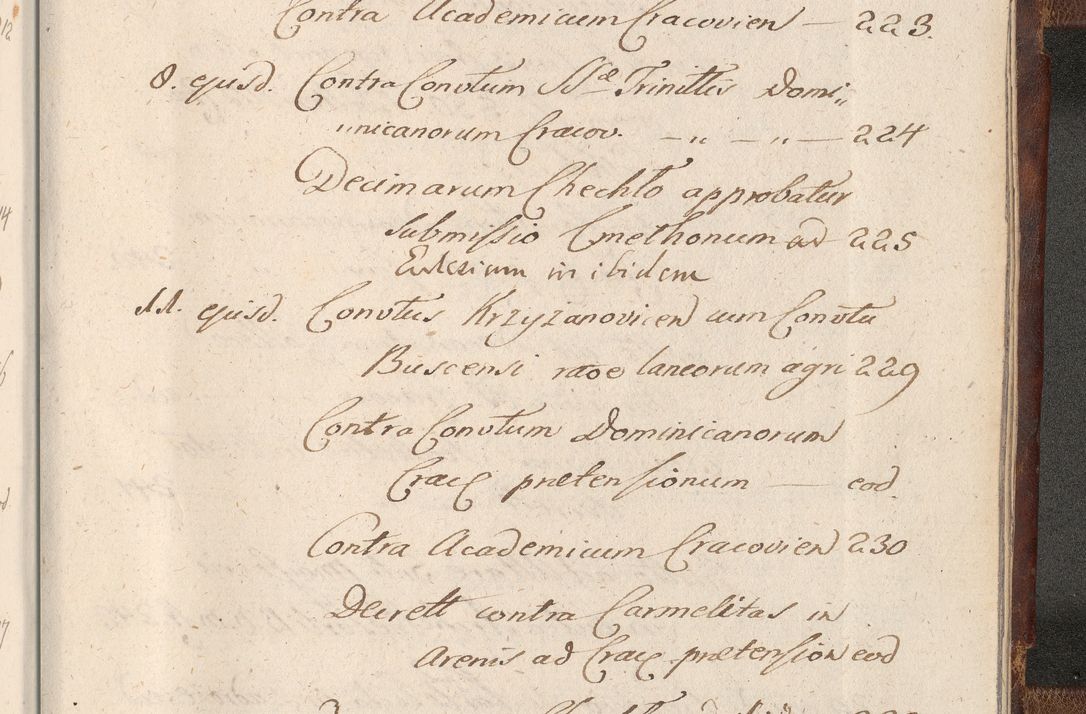 Contra Academicum Cracovien — 223.
8. ejusd. Contra Convtum SSæ Trinittis Domi„
„nicanorum Cracov. — „ — „ — 224
Decimarum Chechło approbatur
submissio Cmethonum ad 225
Eclesiam in ibidem
11. ejusd. Convtus Krzyżanovicen cum Convtu
Buscensi raõe laneorum agri 229
Contra Convtum Dominicanorum
Crac prætensionum — eod.
Contra Academicum Cracovien 230
Decrett contra Carmelitas in
Arenis ad Crac prætension eod